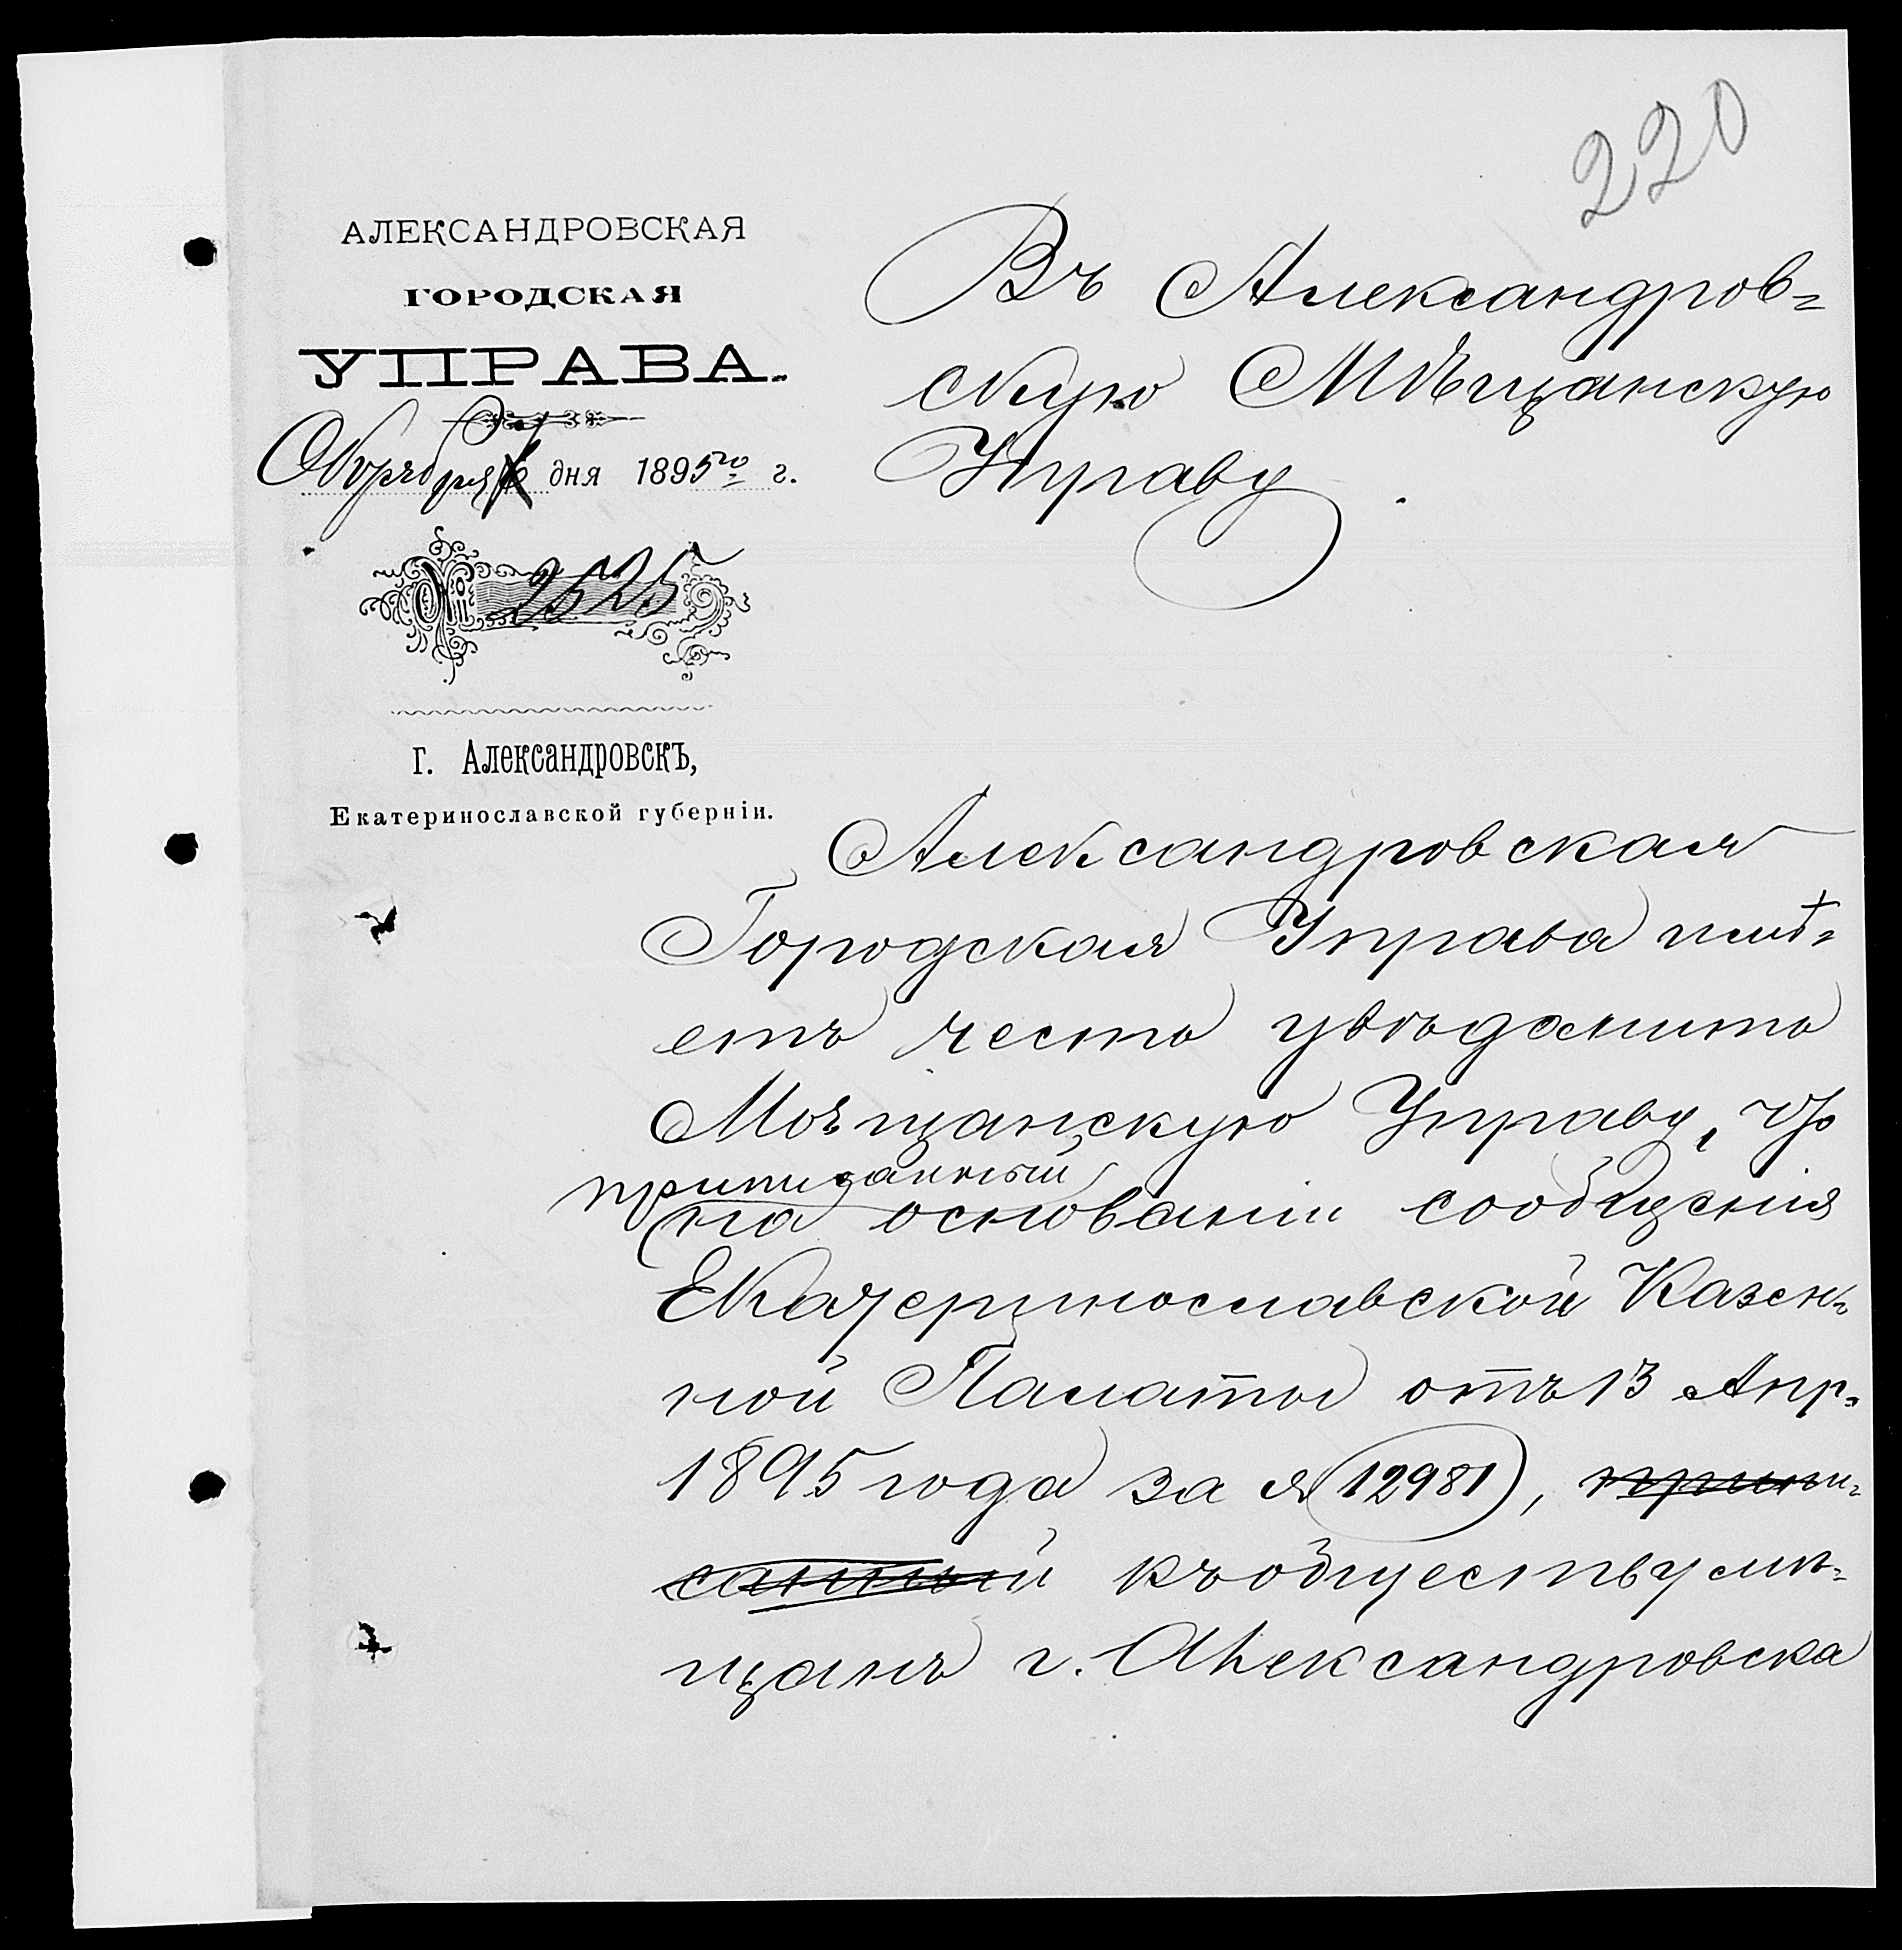 220
АЛЕКСАНДРОВСКАЯ
ГОРОДСКАЯ
УПРАВА.
дня 1895го г.
№ 2525
г. Александровскъ,
Екатеринославской губерніи.
Въ Александров=
скую Мѣщанскую
Управу
Александровская
Городская Управа имѣ=
етъ честь увѣдомить
Мѣщанскую Управу, что
приписанный
на основаніи сообщенія
Екатеринославской Казен=
ной Палаты отъ 13 Апр.
1895 года за № 12981, припи=
санный къ обществу мѣ=
щанъ г. Александровска